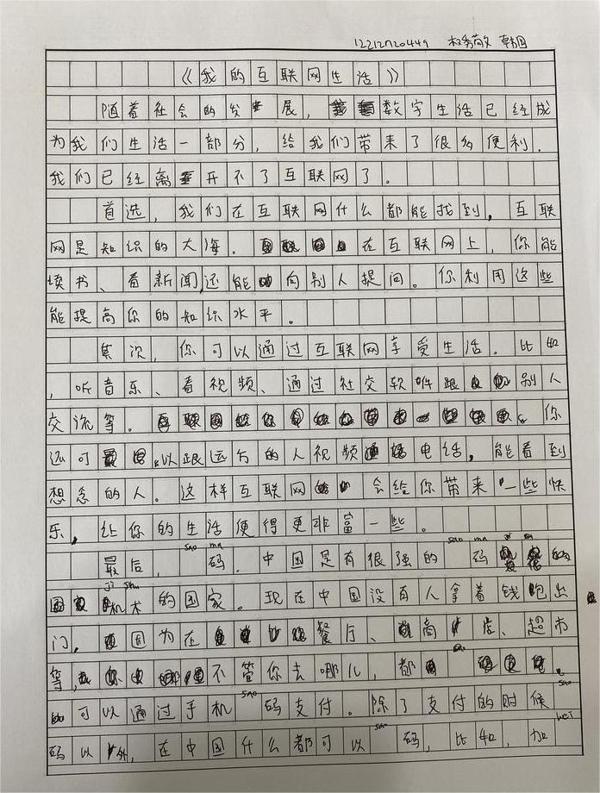 12212720449 韩国
《我的互联网生活》
随着社会的发展，数字生活已经成
为我们生活一部分，给我们带来了很多便利.
我们已经离开不了互联网了。
首选，我们在互联网什么都能找到，互联
网是知识的大海. 在互联网上，你能
读书、看新闻,还能向别人提问。你利用这些
能提高你的知识水平。
其次，你可以通过互联网享受生活。比如
，听音乐、看视频、通过社交软件跟别人
交流等. 你
还可以跟远方的人视频电话，能看到
想念的人。这样互联网会给你带来一些快
乐，让你的生活便得更非富一些。
最后，sao ma码. 中国是有很强的sao ma码
ji shu机术的国家。现在中国没有人拿着钱包出
门，因为在餐厅、商店、超市
等，不管你去哪儿，都
可以通过手机sao码支付。除了支付的时候sao
码以外，在中国什么都可以sao码，比如，加